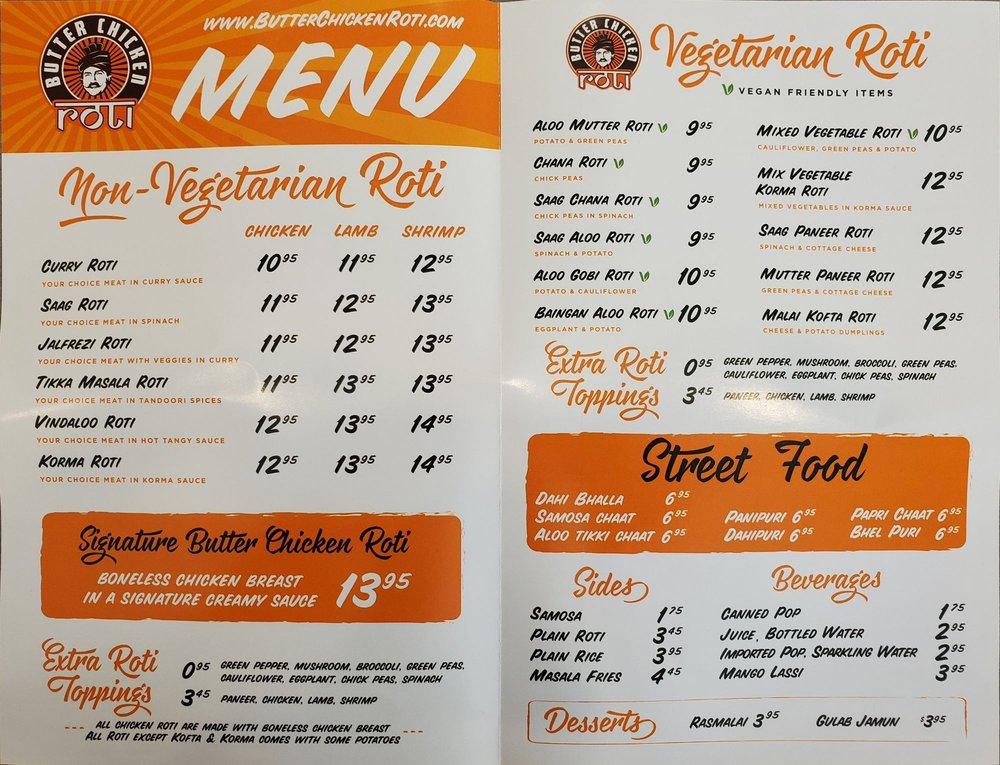 BUTTER CHICKEN
ROTI
www.ButterChickenRoti.com
MENU
Non-Vegetarian Roti
CHICKEN LAMB SHRIMP
CURRY ROTI 10.95 11.95 12.95
YOUR CHOICE MEAT IN CURRY SAUCE
SAAG ROTI 11.95 12.95 13.95
YOUR CHOICE MEAT IN SPINACH
JALFREZI ROTI 11.95 12.95 13.95
YOUR CHOICE MEAT WITH VEGGIES IN CURRY
TIKKA MASALA ROTI 11.95 13.95 13.95
YOUR CHOICE MEAT IN TANDOORI SPICES
VINDALOO ROTI 12.95 13.95 14.95
YOUR CHOICE MEAT IN HOT TANGY SAUCE
KORMA ROTI 12.95 13.95 14.95
YOUR CHOICE MEAT IN KORMA SAUCE
Signature Butter Chicken Roti
BONELESS CHICKEN BREAST
IN A SIGNATURE CREAMY SAUCE 13.95
Extra Roti Toppings
0.95 GREEN PEPPER, MUSHROOM, BROCCOLI, GREEN PEAS,
CAULIFLOWER, EGGPLANT, CHICK PEAS, SPINACH
3.45 PANEER, CHICKEN, LAMB, SHRIMP
ALL CHICKEN ROTI ARE MADE WITH BONELESS CHICKEN BREAST
ALL ROTI EXCEPT KOFTA & KORMA COMES WITH SOME POTATOES
BUTTER CHICKEN
ROTI
Vegetarian Roti
VEGAN FRIENDLY ITEMS
ALOO MUTTER ROTI 9.95
POTATO & GREEN PEAS
CHANA ROTI 9.95
CHICK PEAS
SAAG CHANA ROTI 9.95
CHICK PEAS IN SPINACH
SAAG ALOO ROTI 9.95
SPINACH & POTATO
ALOO GOBI ROTI 10.95
POTATO & CAULIFLOWER
BAINGAN ALOO ROTI 10.95
EGGPLANT & POTATO
MIXED VEGETABLE ROTI 10.95
CAULIFLOWER, GREEN PEAS & POTATO
MIX VEGETABLE
KORMA ROTI 12.95
MIXED VEGETABLES IN KORMA SAUCE
SAAG PANEER ROTI 12.95
SPINACH & COTTAGE CHEESE
MUTTER PANEER ROTI 12.95
GREEN PEAS & COTTAGE CHEESE
MALAI KOFTA ROTI 12.95
CHEESE & POTATO DUMPLINGS
Extra Roti Toppings
0.95 GREEN PEPPER, MUSHROOM, BROCCOLI, GREEN PEAS,
CAULIFLOWER, EGGPLANT, CHICK PEAS, SPINACH
3.45 PANEER, CHICKEN, LAMB, SHRIMP
Street Food
DAHI BHALLA 6.95
SAMOSA CHAAT 6.95 PANIPURI 6.95 PAPRI CHAAT 6.95
ALOO TIKKI CHAAT 6.95 DAHIPURI 6.95 BHEL PURI 6.95
Sides
SAMOSA 1.75
PLAIN ROTI 3.45
PLAIN RICE 3.95
MASALA FRIES 4.45
Beverages
CANNED POP 1.75
JUICE, BOTTLED WATER 2.95
IMPORTED POP, SPARKLING WATER 2.95
MANGO LASSI 3.95
Desserts RASMALAI 3.95 GULAB JAMUN $3.95